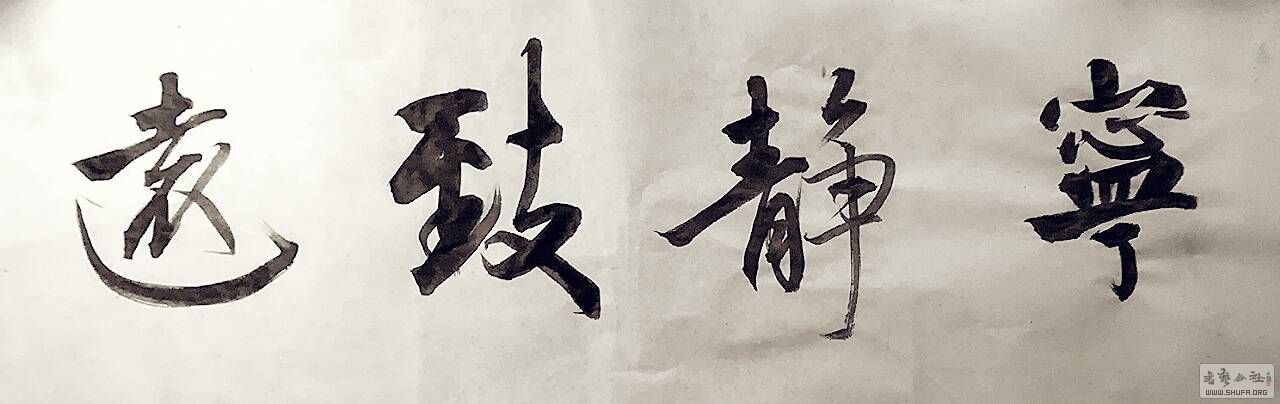 寧靜致遠
书艺公社
WWW.SHUFA.ORG